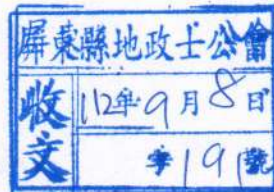 屏東縣地政士公會
收文
112年9月8日
字191號